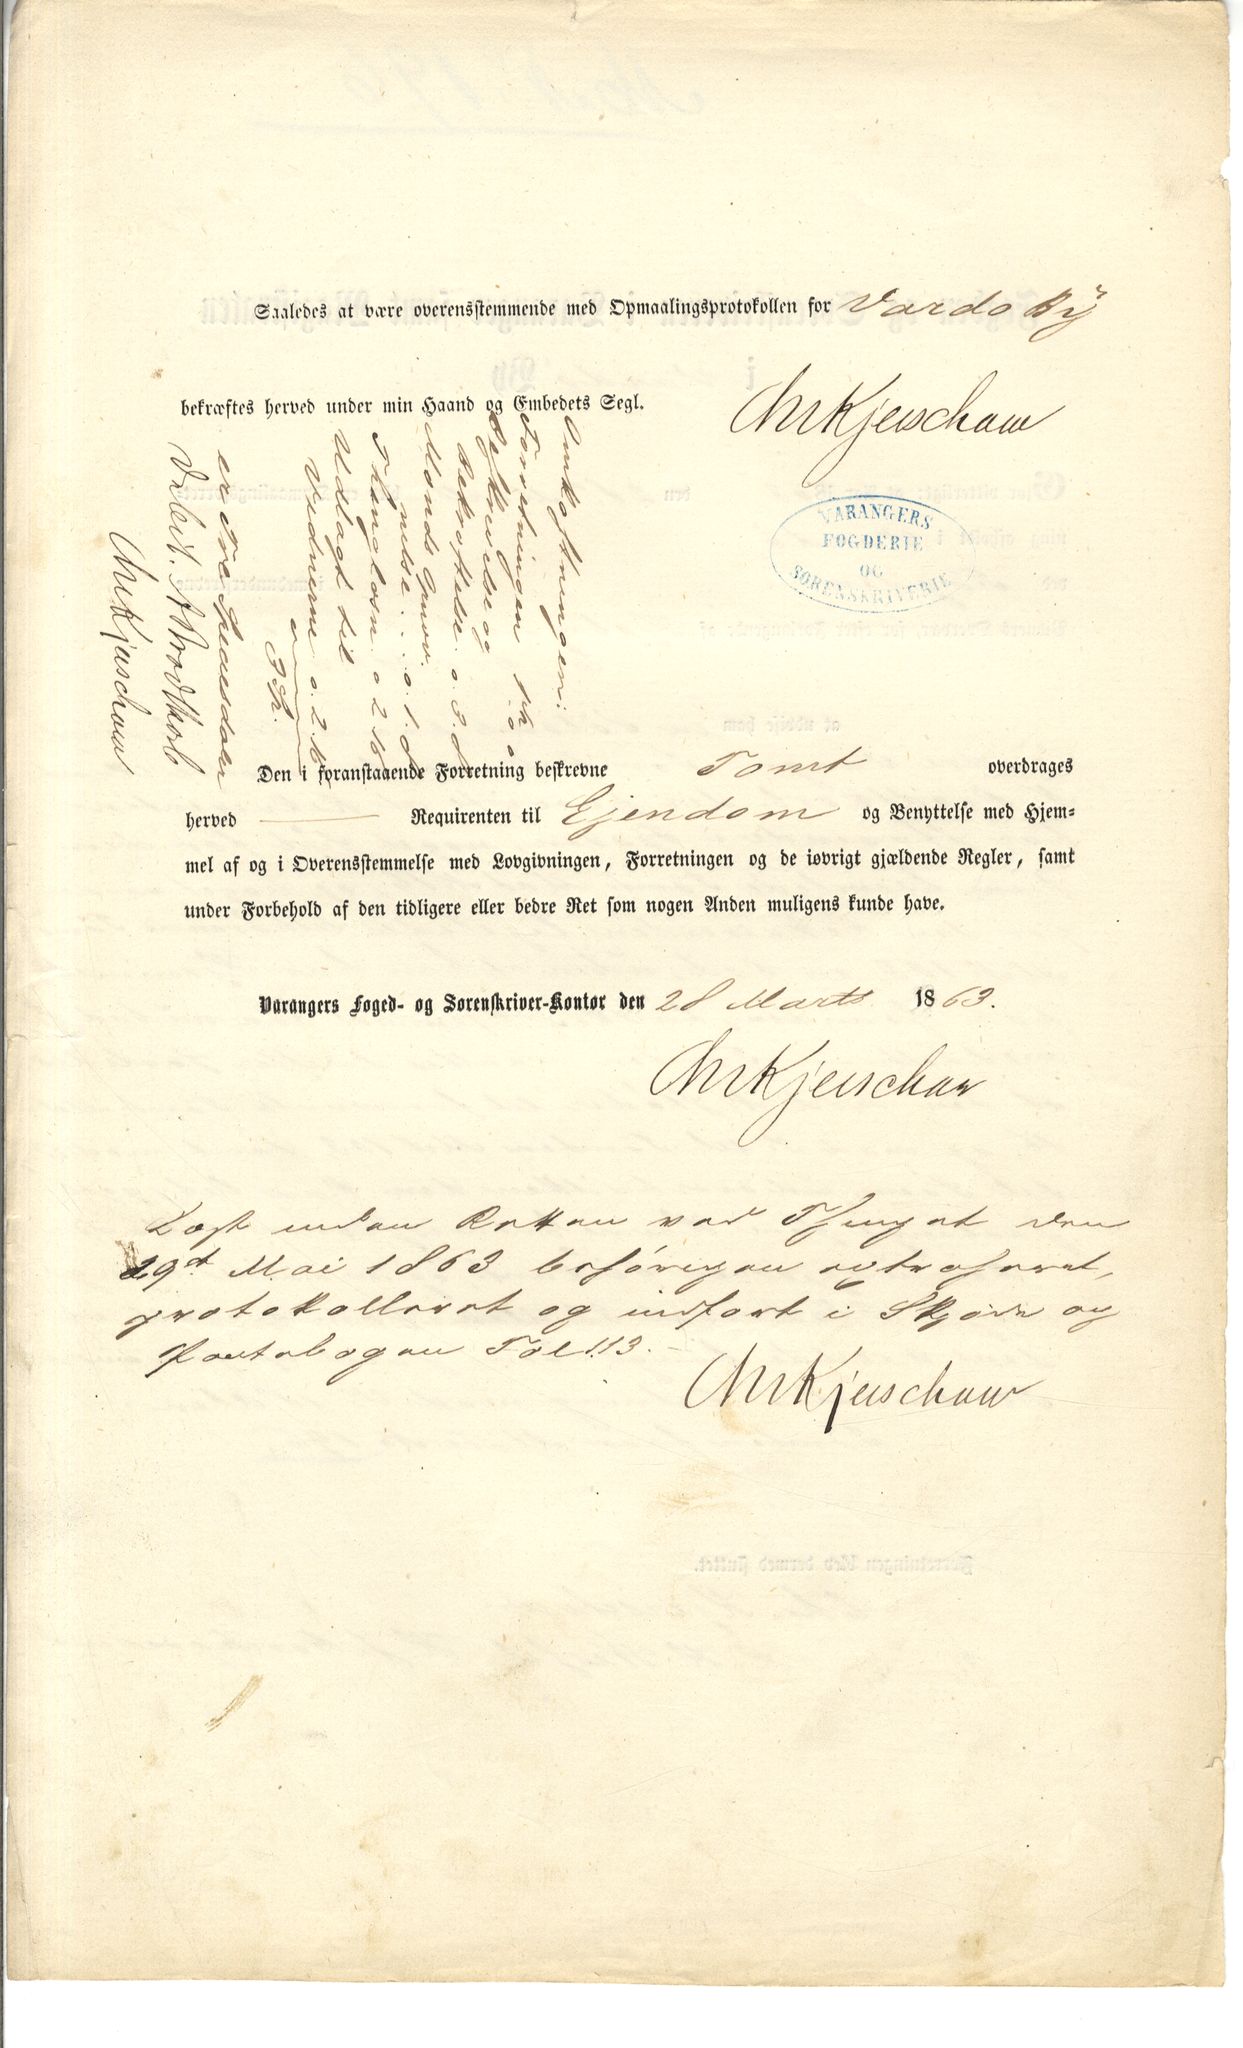 Saaledes at være overensstemmende med Opmaalingsprotokollen for Vardo By
bekræftes herved under min Haand og Embedets Segl.
ChrKjerschow
VARANGERS
FOGDERIE
OG
SORENSKRIVERIE
Omkostningen:
Forretningen
Beskrivelse og
Bekræftelse
Thinglæsn. o. 2.
Udlagt til
Vidnerne o. 2.
er tre Speciesdaler
ChrKjerschow
Den i foranstaaende Forretning beskrevne Tomt overdrages
herved Requirenten til Ejendom og Benyttelse med Hjem-
mel af og i Overensstemmelse med Lovgivningen, Forretningen og de iøvrigt gjældende Regler, samt
under Forbehold af den tidligere eller bedre Ret som nogen Anden muligens kunde have.
Varangers Foged- og Sorenskriver-Kontor den 28 Marts 1863.
ChrKjerschow
Læst inden Retten ved Thinget den
29de Mai 1863
protokolleret og indført i Skjøde og
Pantebogen Fol 113.
ChrKjerschow